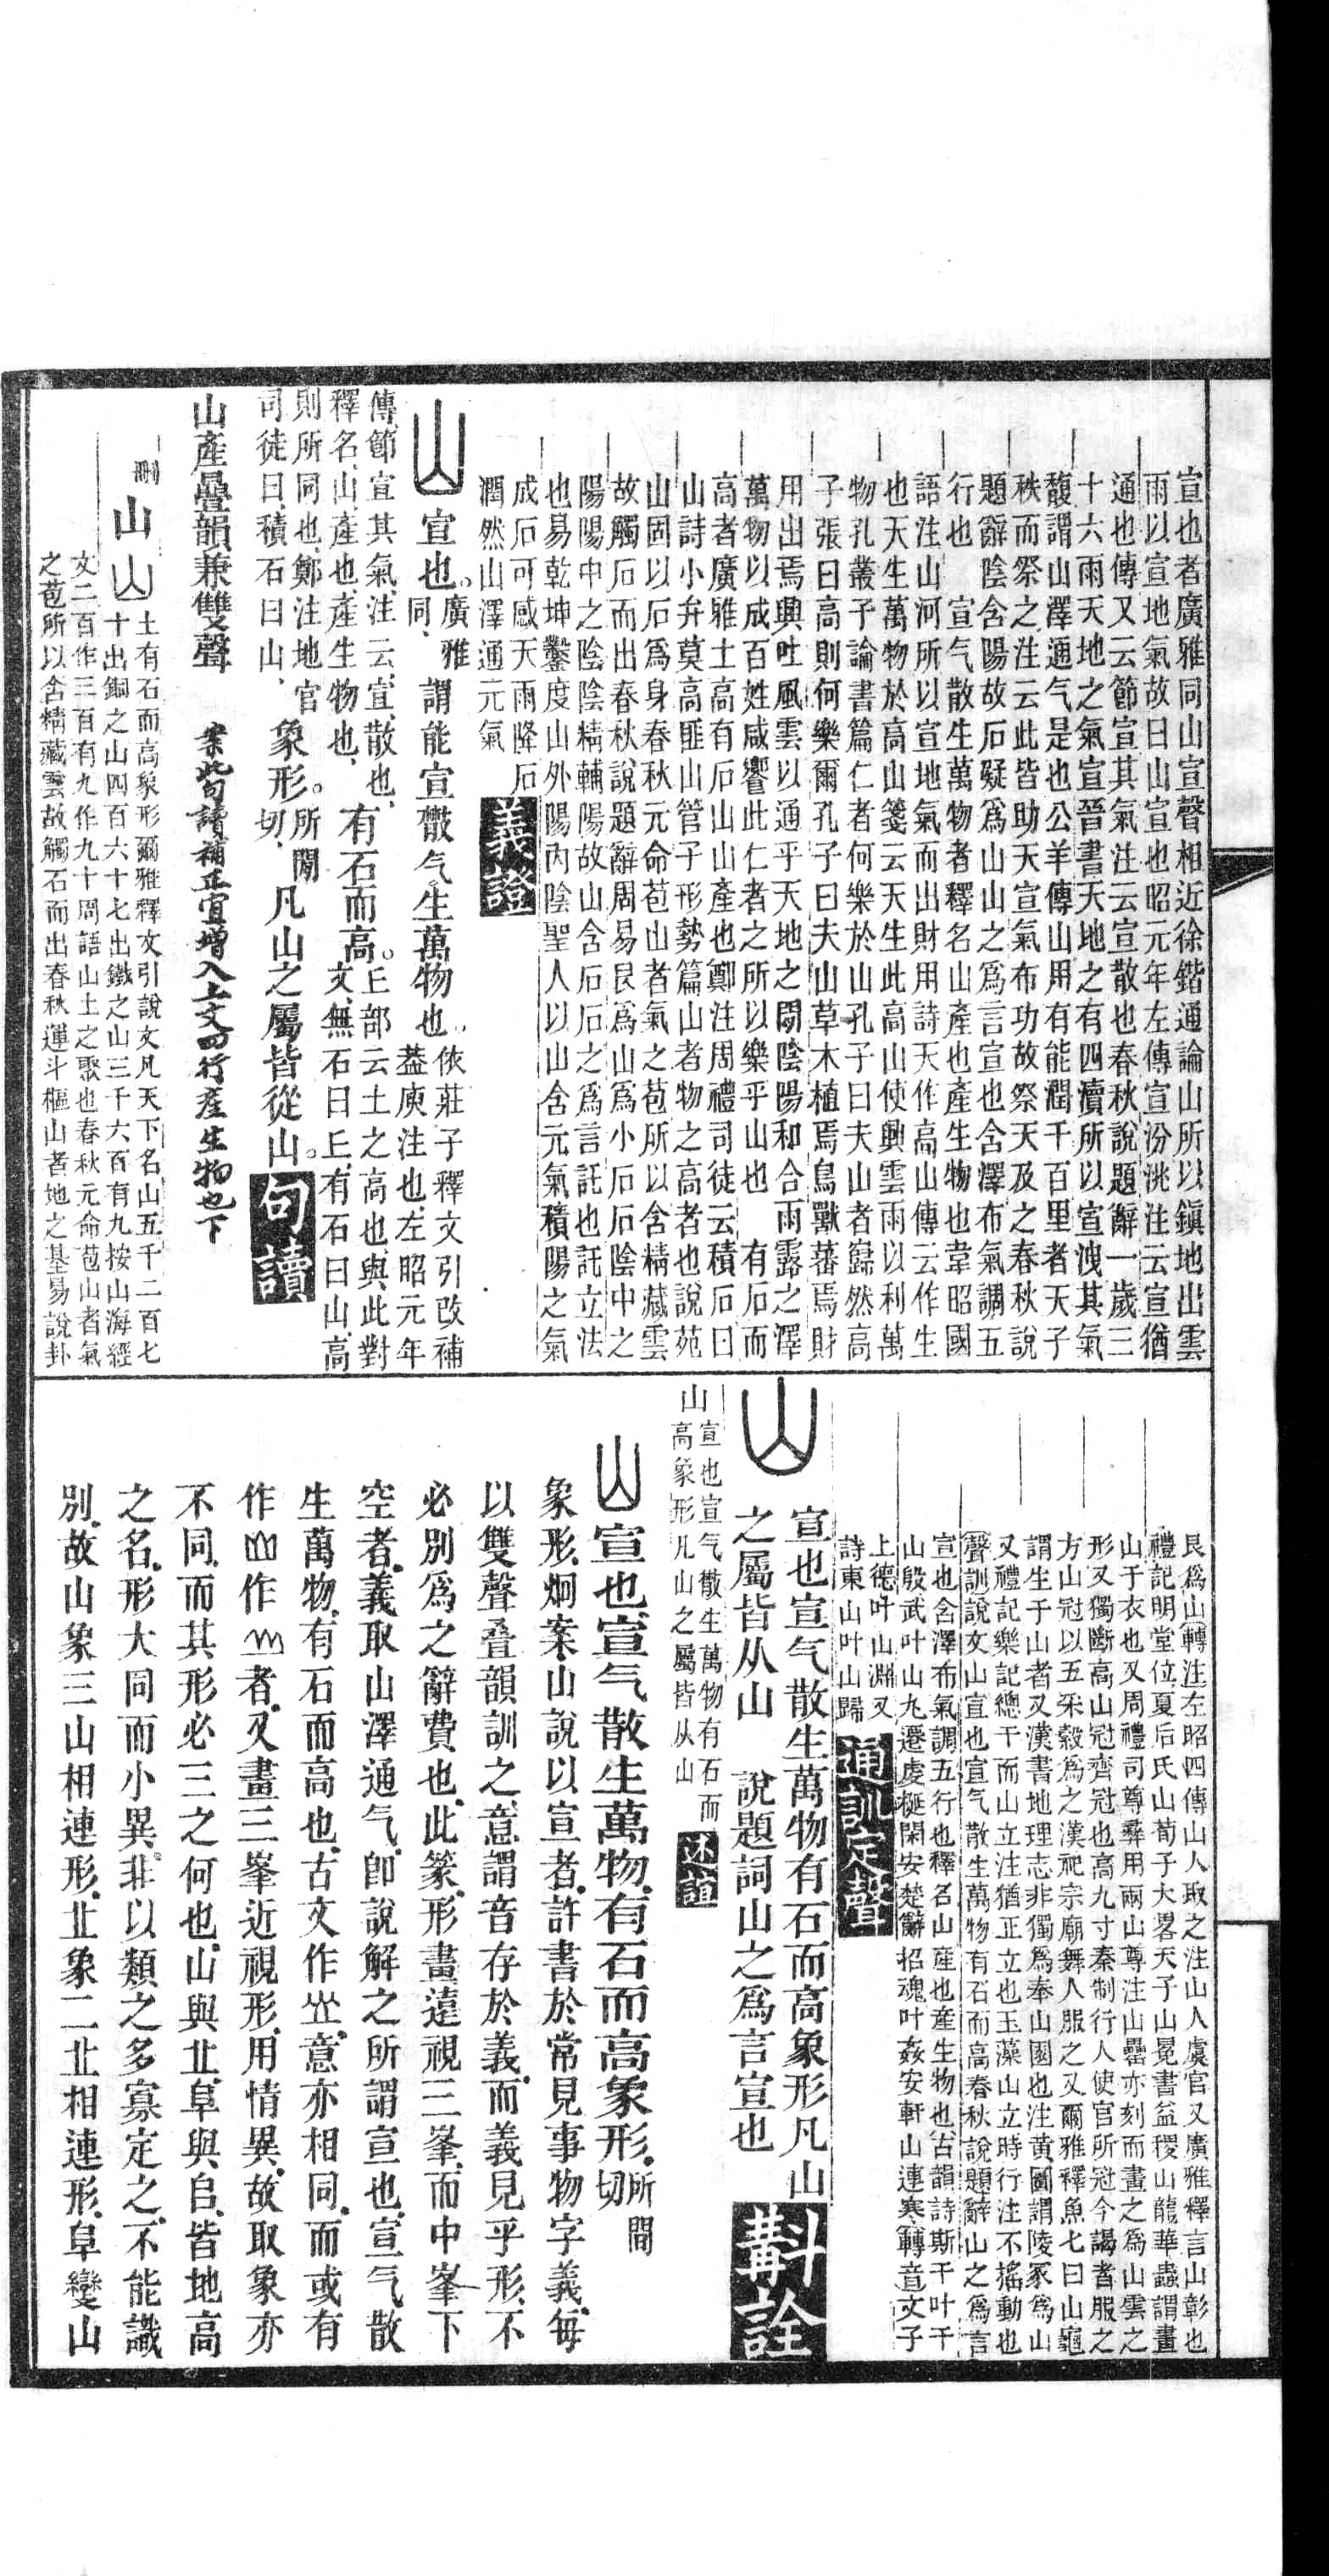 宣也者廣雅同山宣聲相近徐鍇通論山所以鎮地出雲
雨以宣地氣故曰山宣也昭元年左傳宣汾洮注云宣猶
通也傳又云節宣其氣注云宣散也春秋說題辭一歲三
十六雨天地之氣宣晉書天地之有四瀆所以宣洩其氣
馥謂山澤通气是也公羊傳山用有能潤千百里者天子
秩而祭之注云此皆助天宣氣布功故祭天及之春秋說
題辭陰含陽故石凝為山山之為言宣也含澤布氣調五
行也　宣气散生萬物者釋名山產也產生物也韋昭國
語注山河所以宣地氣而出財用詩天作高山傳云作生
也天生萬物於高山箋云天生此高山使興雲雨以利萬
物孔叢子論書篇仁者何樂於山孔子曰夫山者巋然高
子張曰高則何樂爾孔子曰夫山草木植焉鳥獸蕃焉財
用出焉興吐風雲以通乎天地之閒陰陽和合雨露之澤
萬物以成百姓咸饗此仁者之所以樂乎山也　有石而
高者廣雅土高有石山山產也鄭注周禮司徒云積石曰
山詩小弁莫高匪山管子形勢篇山者物之高者也說苑
山固以石為身春秋元命苞山者氣之苞所以含精藏雲
故觸石而出春秋說題辭周易艮為山為小石石陰中之
陽陽中之陰陰精輔陽故山含石石之為言託也託立法
也易乾坤鑿度山外陽內陰聖人以山含元氣積陽之氣
成石可感天雨降石
潤然山澤通元氣
義證
山宣也。廣雅同、謂能宣㪔气。生萬物也。依莊子釋文引改補
葢庾注也、左昭元年
傳、節宣其氣、注云、宣、散也、
釋名、山、產也、產生物也、有石而高。丘部云土之高也、與此對
文、無石曰丘、有石曰山、高
則所同也、鄭注地官
司徒曰、積石曰山、象形。所閒切、凡山之屬皆從山。
句讀
山產疊韻兼雙聲　案此句讀補正宜增入上文四行產生物也下
刪山山土有石而高象形爾雅釋文引說文凡天下名山五千二百七
十出銅之山四百六十七出鐵之山三千六百有九按山海經
文二百作三百有九作九十周語山土之聚也春秋元命苞山者氣
之苞所以含精藏雲故觸石而出春秋運斗樞山者地之基易說卦
艮為山轉注左昭四傳山人取之注山人虞官又廣雅釋言山彰也
禮記明堂位夏后氏山荀子大畧天子山冕書益稷山龍華蟲謂畫
山于衣也又周禮司尊彝用兩山尊注山罍亦刻而畫之為山雲之
形又獨斷高山冠齊冠也高九寸秦制行人使官所冠今謁者服之
方山冠以五采縠為之漢祀宗廟舞人服之又爾雅釋魚七曰山龜
謂生于山者又漢書地理志非獨為奉山園也注黃圖謂陵冢為山
又禮記樂記總干而山立注猶正立也玉藻山立時行注不搖動也
聲訓說文山宣也宣气散生萬物有石而高春秋說題辭山之為言
宣也含澤布氣調五行也釋名山產也產生物也古韻詩斯干叶干
山殷武叶山九遷虔梴閑安楚辭招魂叶姦安軒山連寒轉音文子
上德叶山淵又
詩東山叶山歸
通訓定聲
山宣也宣气散生萬物有石而高象形凡山
之屬皆从山　說題詞山之為言宣也
斠詮
山宣也宣气散生萬物有石而
高象形凡山之屬皆从山
述誼
山宣也、宣气散生萬物、有石而高象形、所間切
象形、炯案、山說以宣者、許書於常見事物字義、每
以雙聲疊韻訓之、意謂音存於義、而義見乎形、不
必別為之辭費也、此篆、形畫遠視三峯、而中峯下
空者、義取山澤通气、卽說解之所謂宣也、宣气散
生萬物、有石而高也、古文作、意亦相同、而或有
作作者、又畫三峯近視形、用情異、故取象亦
不同、而其形必三之何也、山與𠀉、阜與𠂤、皆地高
之名、形大同而小異、非以類之多寡定之、不能識
別、故山象三山相連形、𠀉象二𠀉相連形、阜變山